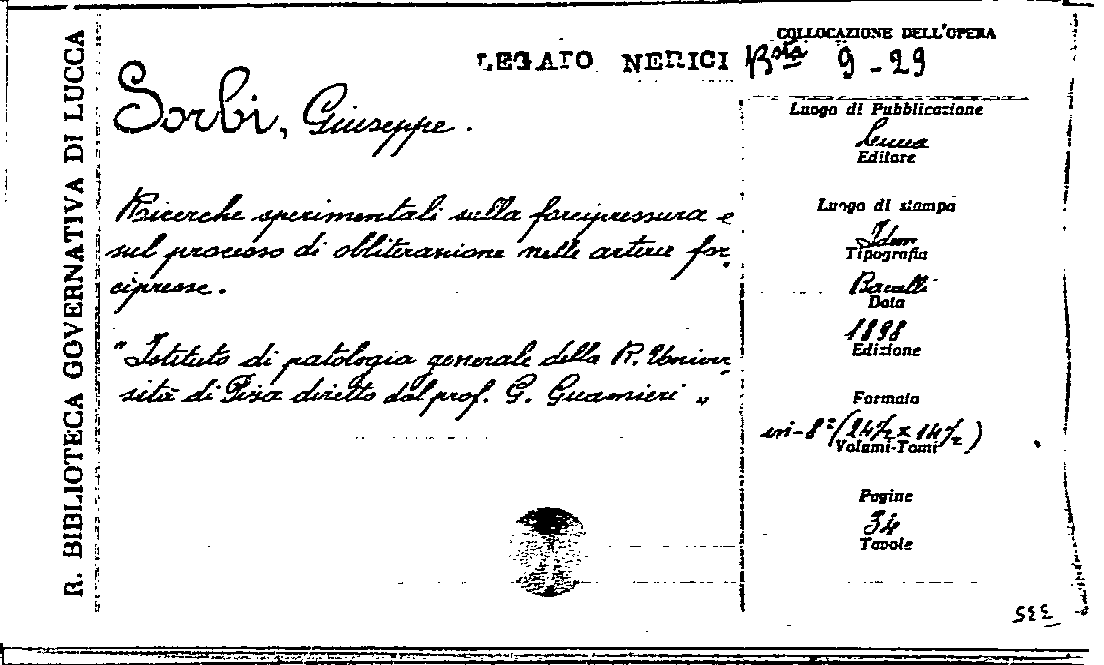 R. BIBLIOTECA GOVERNATIVA DI LUCCA
COLLOCAZIONE DELL'OPERA
LEGATO NERICI Bsta 9-29
Sorbi, Giuseppe.
Ricerche sperimentali sulla forcipressura e
sul processo di obliterazione nelle arterie for,
cipresse.
"Istituto di patologia generale della R. Univer,
sità di Pisa diretto dal prof. G. Guarnieri „
Luogo di Pubblicazione
Lucca
Editore
Luogo di stampa
Idem
Tipografia
Baccelli
Data
1898
Edizione
Formato
in-8° (24½ x 14½)
Volumi-Tomi
Pagine
34
Tavole